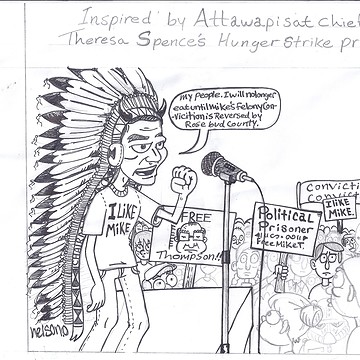 Inspired by Attawapisat Chief
Theresa Spence's Hunger Strike pr
My people. I will no longer
eat until Mike's Felony Con-
viction is Reversed by
Rosebud County.
I LIKE
MIKE
FREE
Thompson!!
Political
Prisoner
Free Mike T.
Convicti
Convict
I LIKE
MIKE
nelson